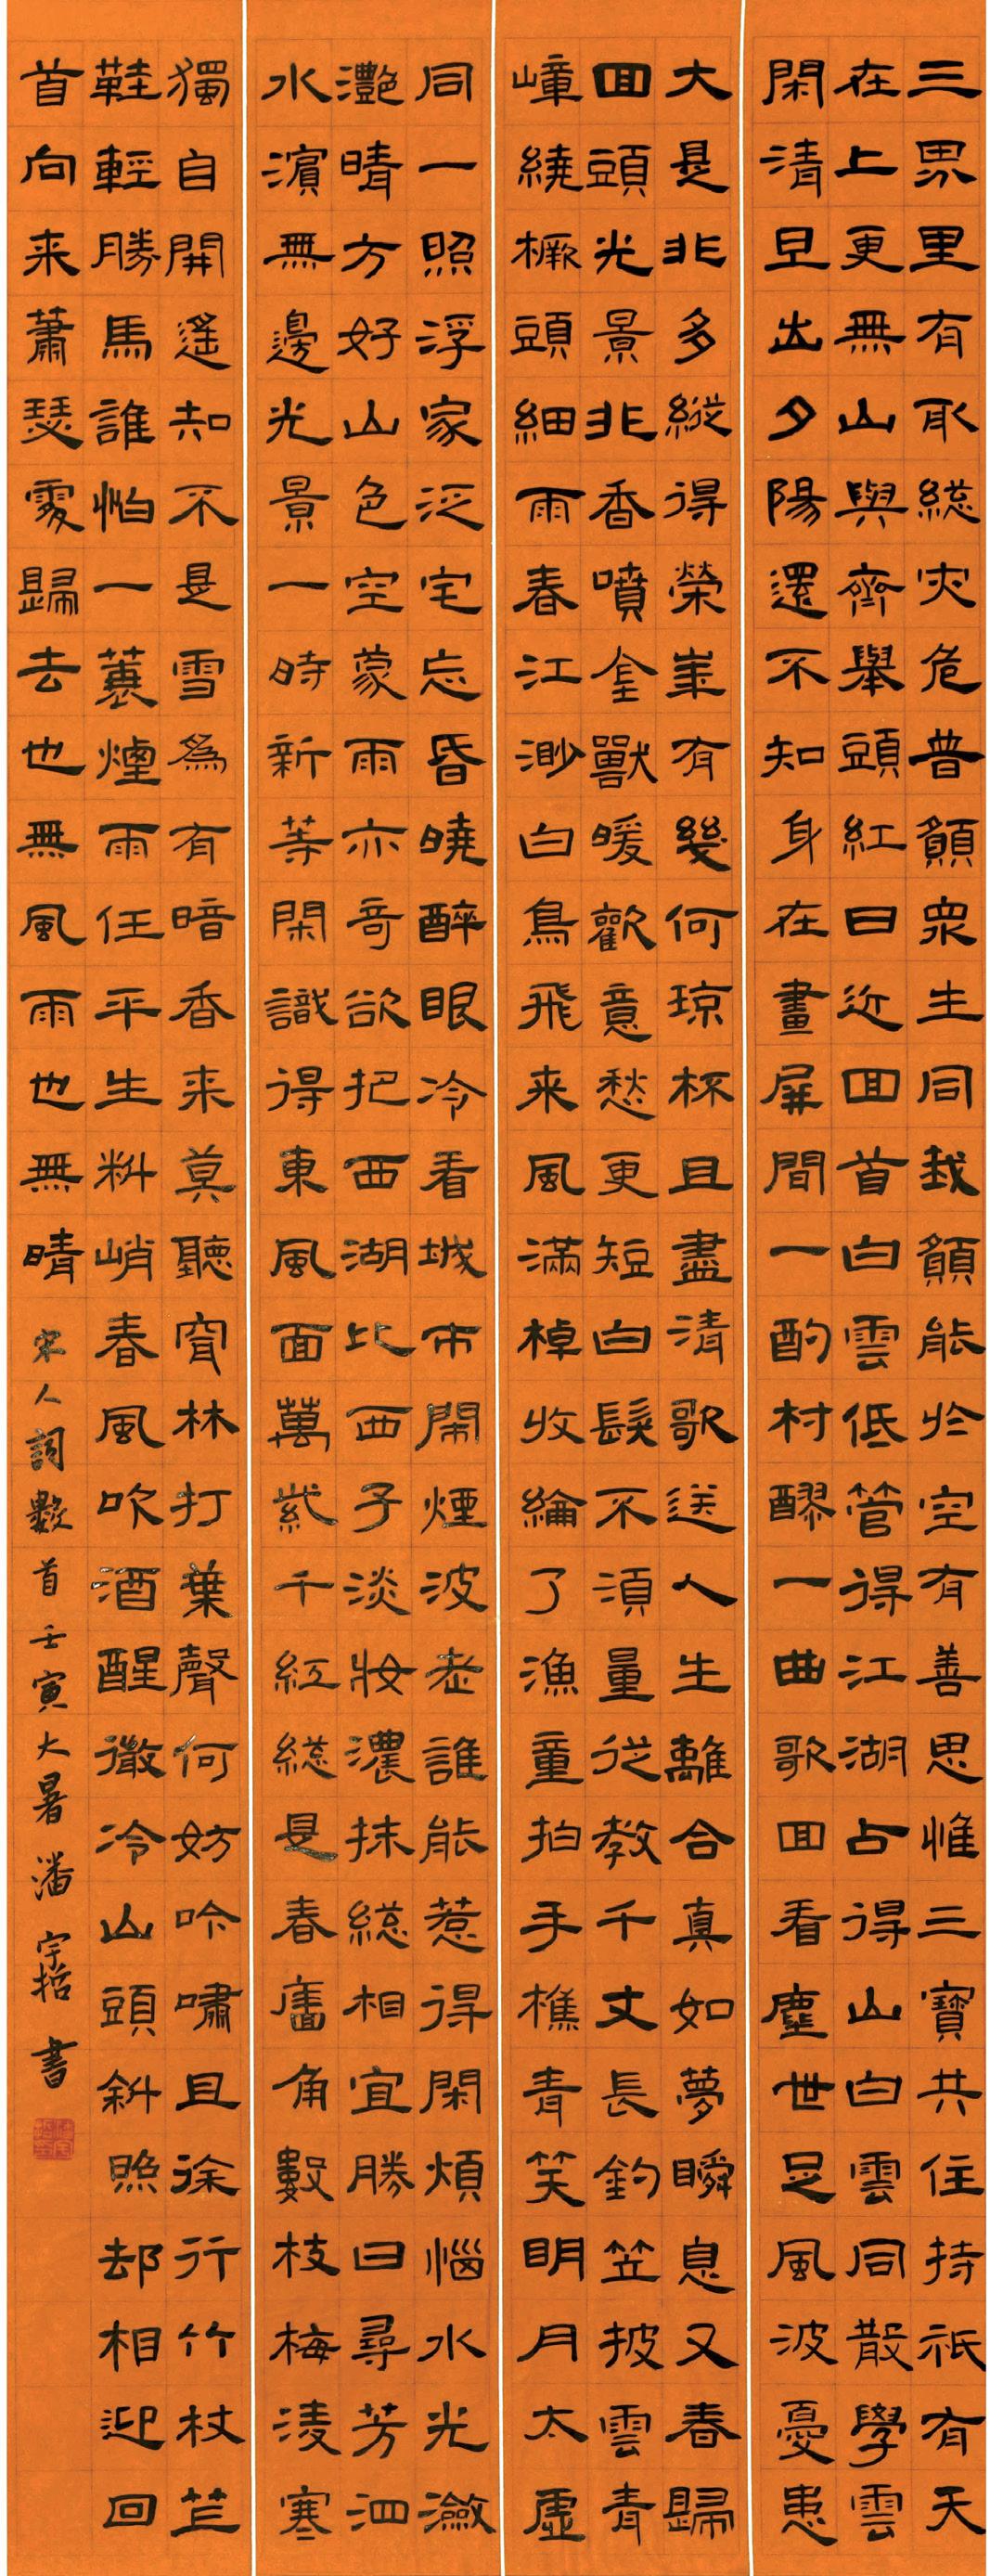 三界里有取総灾危普願衆生同我願能於空有善思惟三寶共住持祇有天
在上更無山與齊舉頭紅日近回首白雲低管得江湖占得山白雲同散學雲
閑清旦出夕陽還不知身在畫屏間一酌村醪一曲歌回看塵世足風波憂患
大是非多縱得榮華有幾何琼杯且盡清歌送人生離合真如夢瞬息又春歸
回頭光景非香噴金獸暖歡意愁更短白髮不須量從教千丈長釣笠披雲青
嶂繞橛頭細雨春江渺白鳥飛来風滿棹收綸了漁童拍手樵青笑明月太虛
同一照浮家泛宅忘昏曉醉眼冷看城市閙煙波老誰能惹得閑煩惱水光瀲
灧晴方好山色空蒙雨亦奇欲把西湖比西子淡妝濃抹総相宜勝日尋芳泗
水濱無邊光景一時新等閑識得東風面萬紫千紅総是春牆角數枝梅凌寒
獨自開遥知不是雪爲有暗香来莫聽穿林打葉聲何妨吟嘯且徐行竹杖芒
鞋輕勝馬誰怕一蓑煙雨任平生料峭春風吹酒醒微冷山頭斜照却相迎回
首向来蕭瑟處歸去也無風雨也無晴 宋人詞數首壬寅大暑潘宇哲書